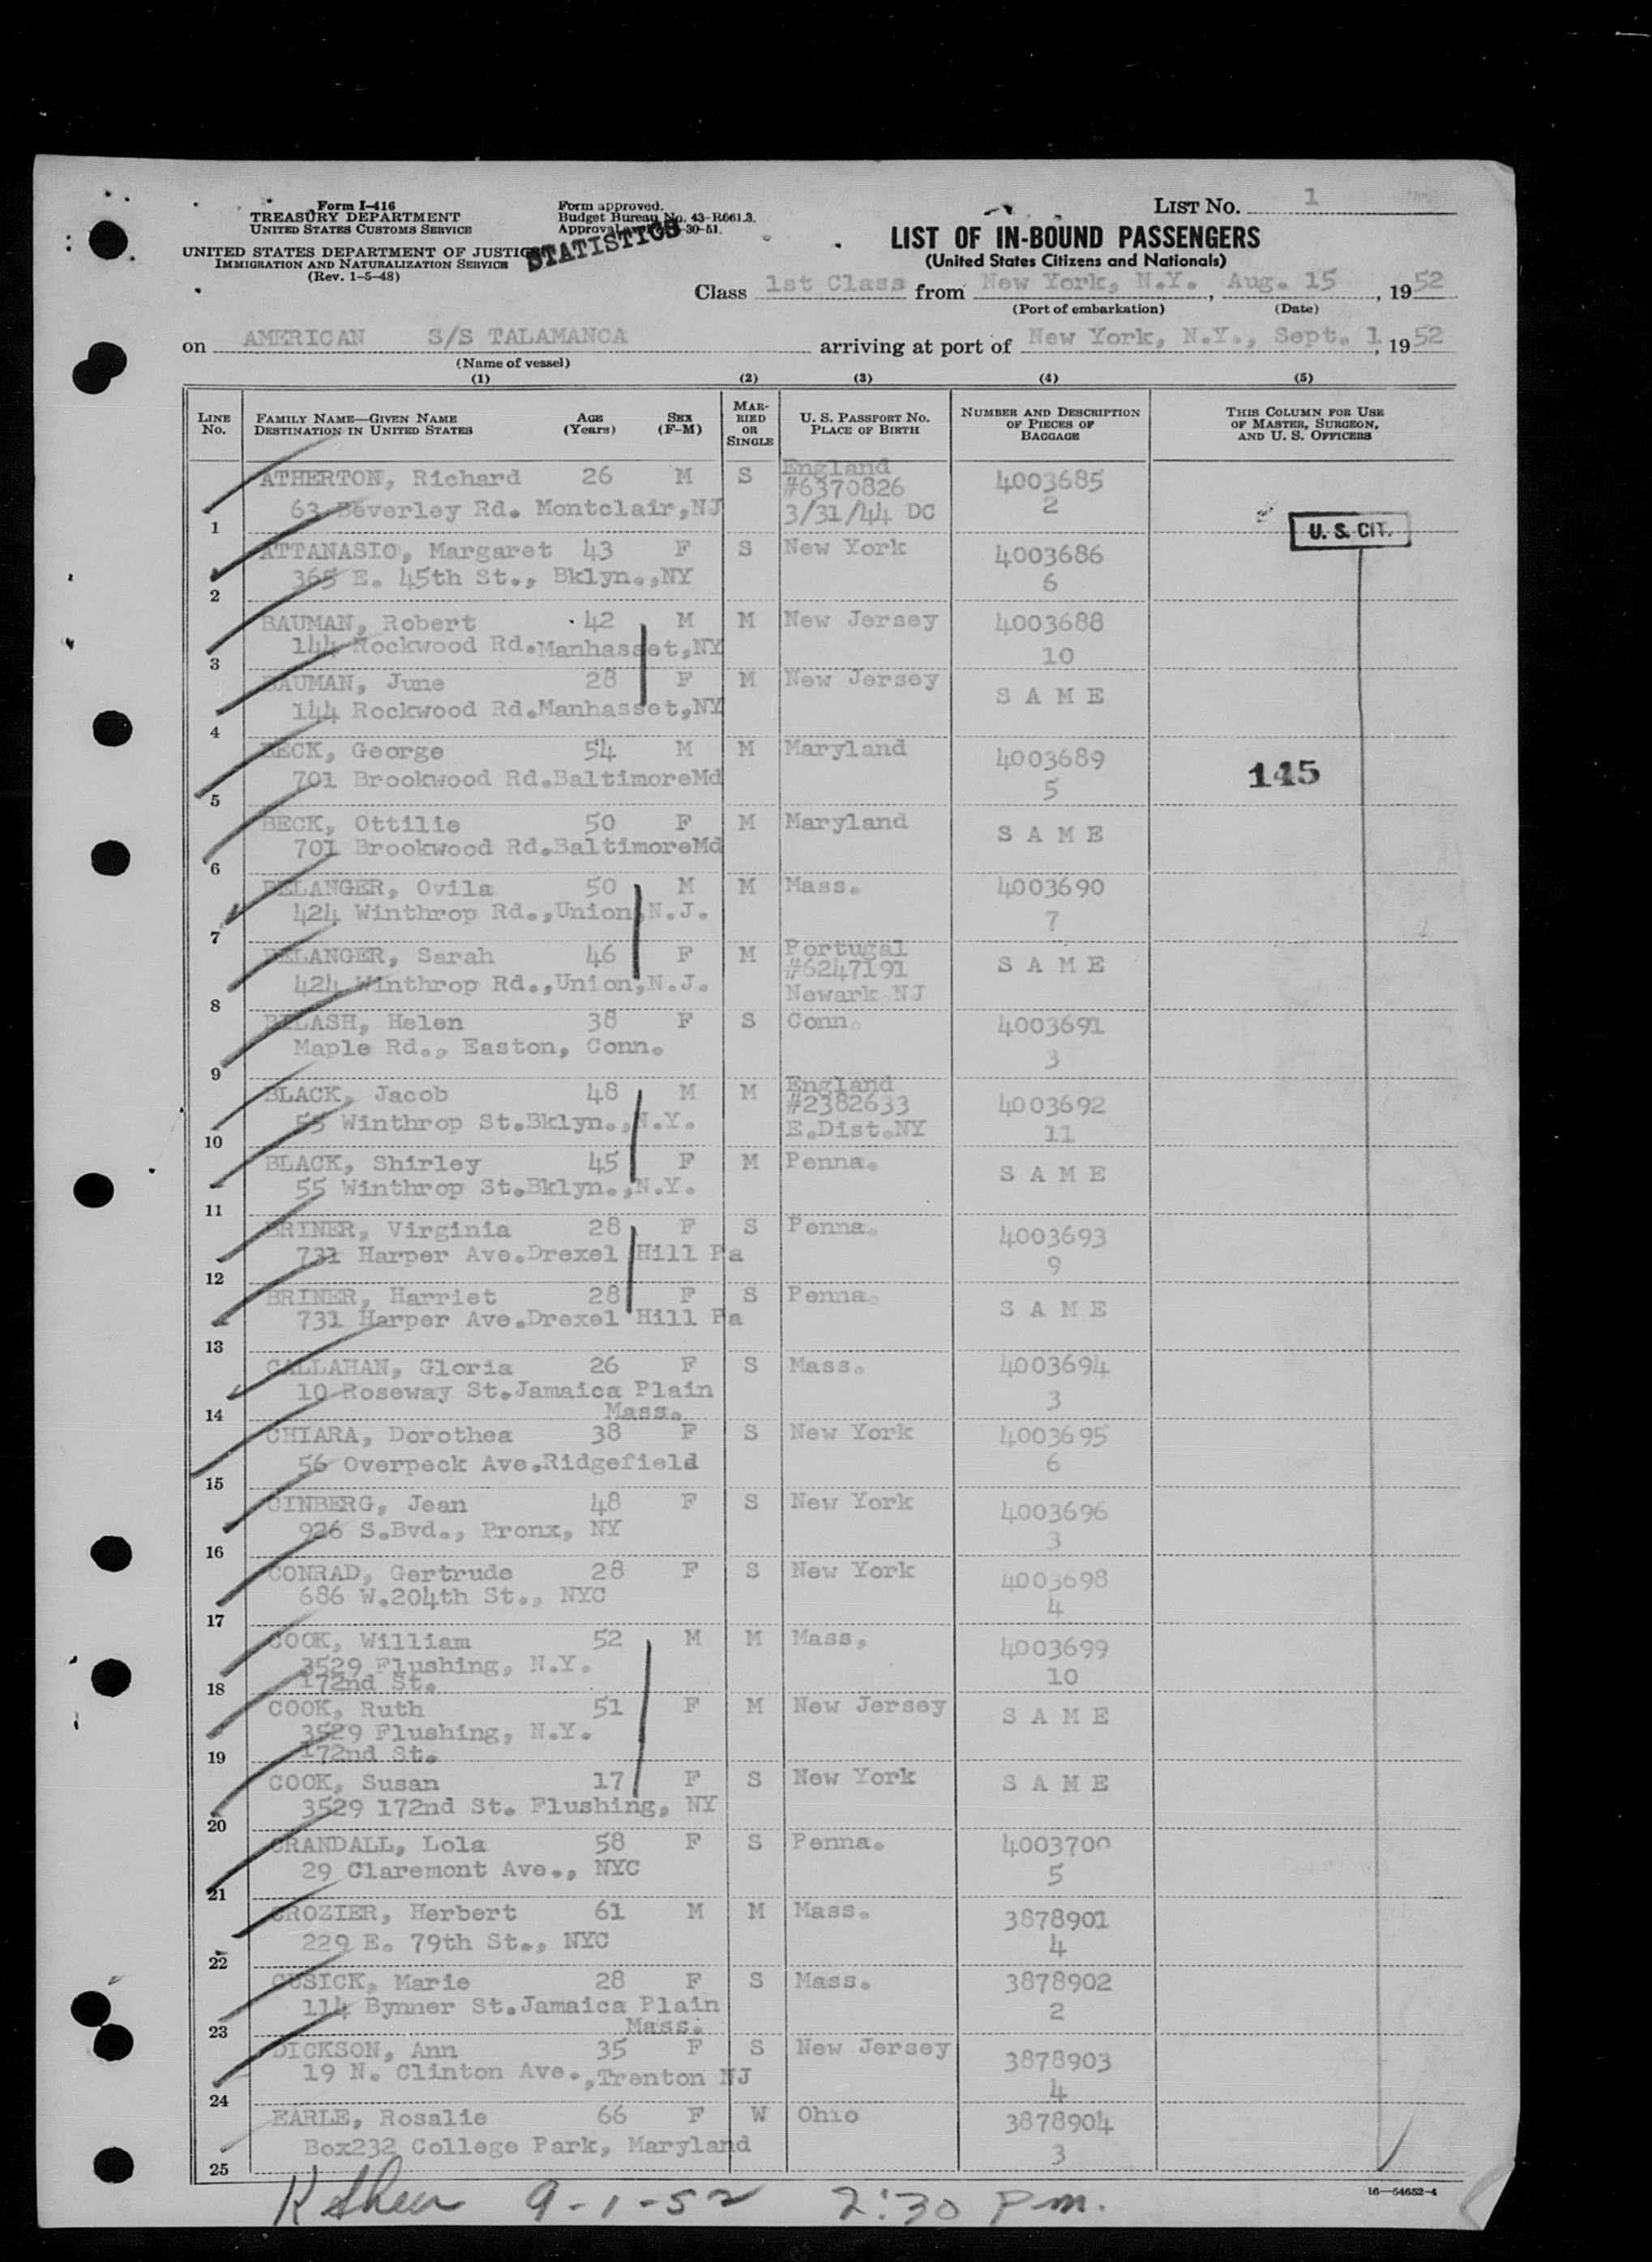 LIST No. 1
Form I-416
TREASURY DEPARTMENT
UNITED STATES CUSTOMS SERVICE
UNITED STATES DEPARTMENT OF JUSTICE
IMMIGRATION AND NATURALIZATION SERVICE
(Rev. 1-5-48)
Form approved.
Budget Bureau No. 43-R061.3.
Approval -30-51.
STATISTICS
LIST OF IN-BOUND PASSENGERS
(United States Citizens and Nationals)
Class 1st Class from New York, N.Y., Aug. 15, 1952
(Port of embarkation) (Date)
on AMERICAN S/S TALAMANCA arriving at port of New York, N.Y., Sept. 1, 1952
(Name of vessel)
(1) (2) (3) (4) (5)
LINE No. FAMILY NAME—GIVEN NAME DESTINATION IN UNITED STATES AGE (Years) SEX (F-M) MARRIED OR SINGLE U. S. PASSPORT No. PLACE OF BIRTH NUMBER AND DESCRIPTION OF PIECES OF BAGGAGE THIS COLUMN FOR USE OF MASTER, SURGEON, AND U. S. OFFICERS
ATHERTON, Richard 26 M S England 4003685
#6370826
1 63 Beverley Rd. Montclair,NJ 3/31/44 DC 2
U. S. CIT.
ATTANASIO, Margaret 43 F S New York 4003686
2 365 E. 45th St., Bklyn.,NY 6
BAUMAN, Robert 42 M M New Jersey 4003688
3 144 Rockwood Rd.Manhasset,NY 10
BAUMAN, June 28 F M New Jersey S A M E
4 144 Rockwood Rd.Manhasset,NY
BECK, George 54 M M Maryland 4003689
5 701 Brookwood Rd.BaltimoreMd 5
145
BECK, Ottilie 50 F M Maryland S A M E
6 701 Brookwood Rd.BaltimoreMd
BELANGER, Ovila 50 M M Mass. 4003690
7 424 Winthrop Rd.,Union,N.J. 7
BELANGER, Sarah 46 F M Portugal S A M E
#6247191
8 424 Winthrop Rd.,Union,N.J. Newark NJ
BELASH, Helen 38 F S Conn. 4003691
9 Maple Rd., Easton, Conn. 3
BLACK, Jacob 48 M M England 4003692
#2382633
10 55 Winthrop St.Bklyn.,N.Y. E.Dist.NY 11
BLACK, Shirley 45 F M Penna. S A M E
11 55 Winthrop St.Bklyn.,N.Y.
BRINER, Virginia 28 F S Penna. 4003693
12 731 Harper Ave.Drexel Hill Pa 9
BRINER, Harriet 28 F S Penna. S A M E
13 731 Harper Ave.Drexel Hill Pa
CALLAHAN, Gloria 26 F S Mass. 4003694
14 10 Roseway St.Jamaica Plain 3
Mass.
CHIARA, Dorothea 38 F S New York 4003695
15 56 Overpeck Ave.Ridgefield 6
CINBERG, Jean 48 F S New York 4003696
16 926 S.Bvd., Bronx, NY 3
CONRAD, Gertrude 28 F S New York 4003698
17 686 W.204th St., NYC 4
COOK, William 52 M M Mass, 4003699
3529 Flushing, N.Y. 10
18 172nd St.
COOK, Ruth 51 F M New Jersey S A M E
3529 Flushing, N.Y.
19 172nd St.
COOK, Susan 17 F S New York S A M E
20 3529 172nd St. Flushing, NY
CRANDALL, Lola 58 F S Penna. 4003700
21 29 Claremont Ave., NYC 5
CROZIER, Herbert 61 M M Mass. 3878901
22 229 E. 79th St., NYC 4
CUSICK, Marie 28 F S Mass. 3878902
23 114 Bynner St.Jamaica Plain 2
Mass.
DICKSON, Ann 35 F S New Jersey 3878903
24 19 N. Clinton Ave.,Trenton NJ 4
EARLE, Rosalie 66 F W Ohio 3878904
25 Box232 College Park, Maryland 3
9-1-52 2:30 Pm.
16—54652-4